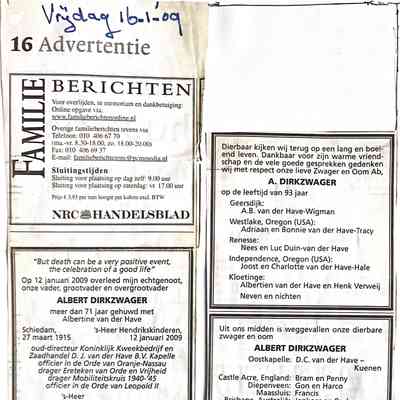 Vrijdag 16-1-09
16 Advertentie
FAMILIE
BERICHTEN
Voor overlijden, in memoriam en dankbetuiging:
Online opgave via.
www.familieberichtenonline.nl
Overige familieberichten tevens via
Telefoon: 010 406 67 70
(ma.-vr. 8.30-18.00, zo. 18.00-20.00)
Fax: 010 406 69 37
E-mail:
Sluitingstijden
Sluiting voor plaatsing op dag zelf: 9.00 uur
Sluiting voor plaatsing op zaterdag: vr 17.00 uur
Prijs € 3,93 per mm hoogte per kolom excl. BTW
NRC HANDELSBLAD
"But death can be a very positive event,
the celebration of a good life"
Op 12 januari 2009 overleed mijn echtgenoot,
onze vader, grootvader en overgrootvader
ALBERT DIRKZWAGER
meer dan 71 jaar gehuwd met
Albertine van der Have
Schiedam, 's-Heer Hendrikskinderen,
27 maart 1915 12 januari 2009
oud-directeur Koninklijk Kweekbedrijf en
Zaadhandel D. J. van der Have B.V. Kapelle
officier in de Orde van Oranje-Nassau
drager Ereteken van Orde en Vrijheid
drager Mobiliteitskruis 1940-'45
officier in de Orde van Leopold II
's-Heer
Dierbaar kijken wij terug op een lang en boei-
end leven. Dankbaar voor zijn warme vriend-
schap en de vele goede gesprekken gedenken
wij met respect onze lieve Zwager en Oom Ab,
A. DIRKZWAGER
op de leeftijd van 93 jaar
Geersdijk:
A.B. van der Have-Wigman
Westlake, Oregon (USA):
Adriaan en Bonnie van der Have-Tracy
Renesse:
Nees en Luc Duin-van der Have
Independence, Oregon (USA):
Joost en Charlotte van der Have-Hale
Kloetinge:
Albertien van der Have en Henk Verweij
Neven en nichten
Uit ons midden is weggevallen onze dierbare
zwager en oom
ALBERT DIRKZWAGER
Oostkapelle: D.C. van der Have –
Kuenen
Castle Acre, England: Bram en Penny
Diepenveen: Gon en Harco
Maassluis: Francis